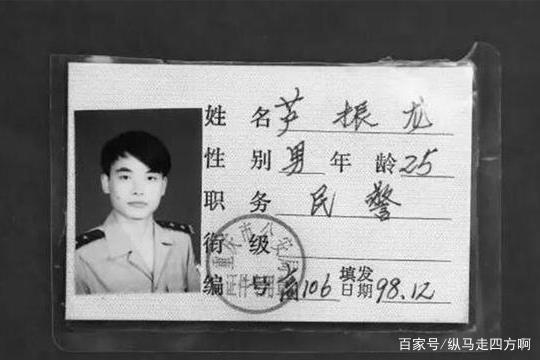 姓名 芦振龙
性别 男 年龄 25
职务 民警
衔级
编号 106 填发日期 98.12
重庆市公安
证件专用章
百家号/纵马走四方啊